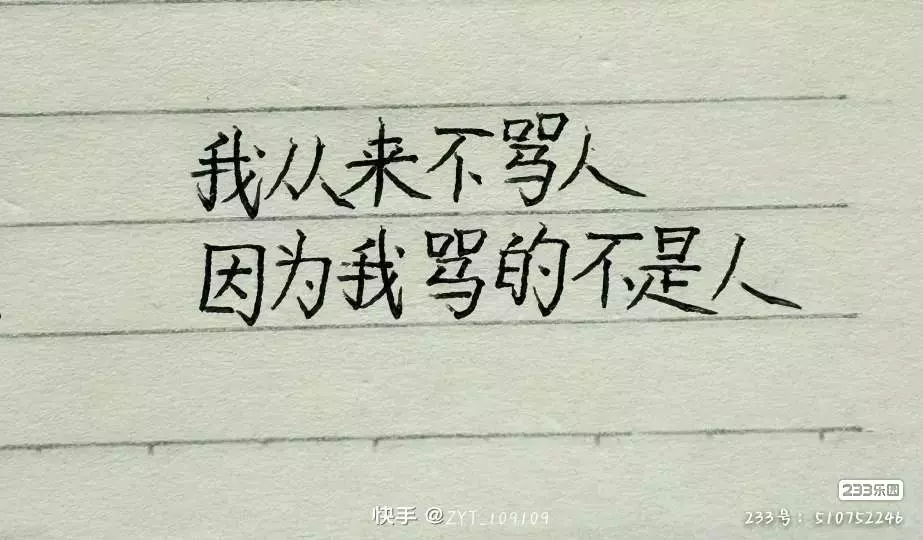 我从来不骂人
因为我骂的不是人
233乐园
快手 @ZYT_109109
233号: 510752246